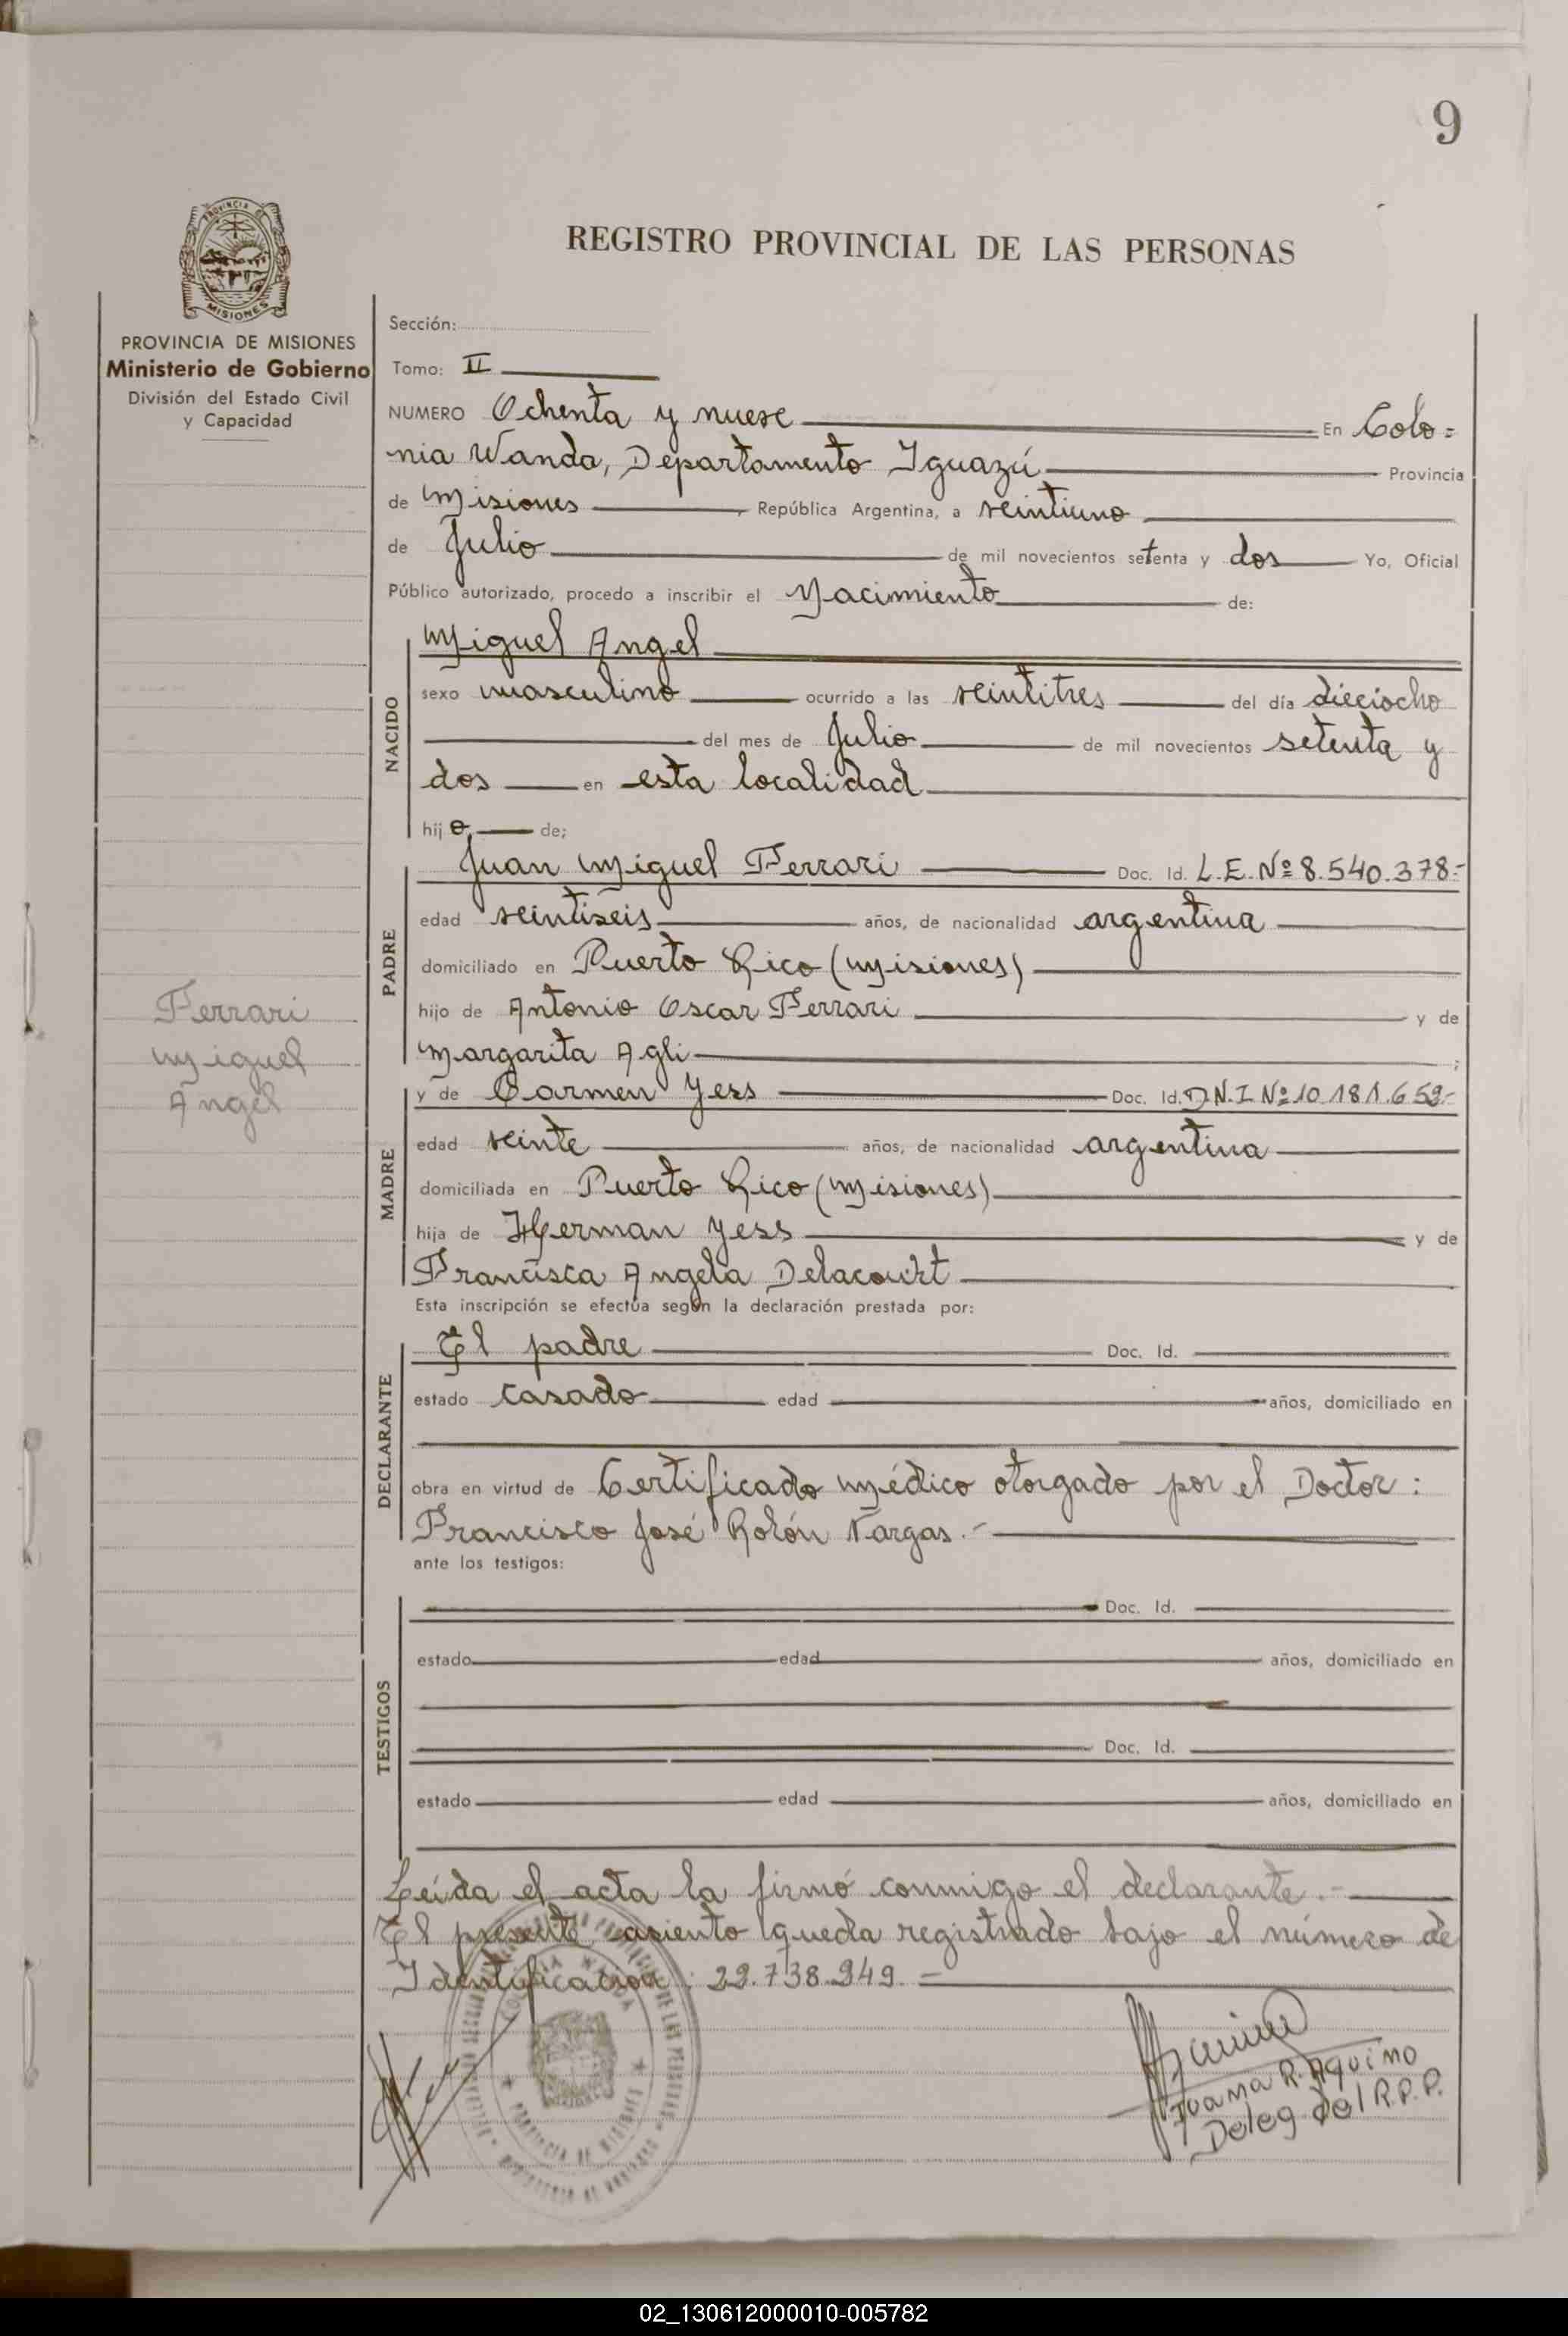 9
REGISTRO PROVINCIAL DE LAS PERSONAS
PROVINCIA DE
MISIONES
PROVINCIA DE MISIONES
Ministerio de Gobierno
División del Estado Civil
y Capacidad
Sección:
Tomo: II
NUMERO Ochenta y nueve En Colo=
nia Wanda, Departamento Iguazú Provincia
de Misiones, República Argentina, a veintiuno
de Julio de mil novecientos setenta y dos Yo, Oficial
Público autorizado, procedo a inscribir el Nacimiento de:
NACIDO
Miguel Angel
sexo masculino ocurrido a las veintitres del día dieciocho
del mes de Julio de mil novecientos setenta y
dos en esta localidad
hijo de;
PADRE
Juan Miguel Ferrari Doc. Id. L.E. Nº 8.540.378.-
edad veintiseis años, de nacionalidad argentina
domiciliado en Puerto Rico (Misiones)
hijo de Antonio Oscar Ferrari y de
Margarita Agli ;
Ferrari
Miguel
Angel
MADRE
y de Carmen Yess Doc. Id. D.N.I Nº 10.181.659.-
edad veinte años, de nacionalidad argentina
domiciliada en Puerto Rico (Misiones)
hija de Herman Yess y de
Francisca Angela Delacourt
Esta inscripción se efectúa según la declaración prestada por:
DECLARANTE
El padre Doc. Id.
estado casado edad años, domiciliado en
obra en virtud de Certificado médico otorgado por el Doctor:
Francisco José Rolón Vargas.-
ante los testigos:
TESTIGOS
Doc. Id.
estado edad años, domiciliado en
Doc. Id.
estado edad años, domiciliado en
Leída el acta la firmó conmigo el declarante.-
El presente asiento queda registrado bajo el número de
Identificación: 22.738.949.-
COLONIA WANDA
PROVINCIA DE MISIONES
Juana R. Aquino
Deleg del R.P.P.
02_130612000010-005782